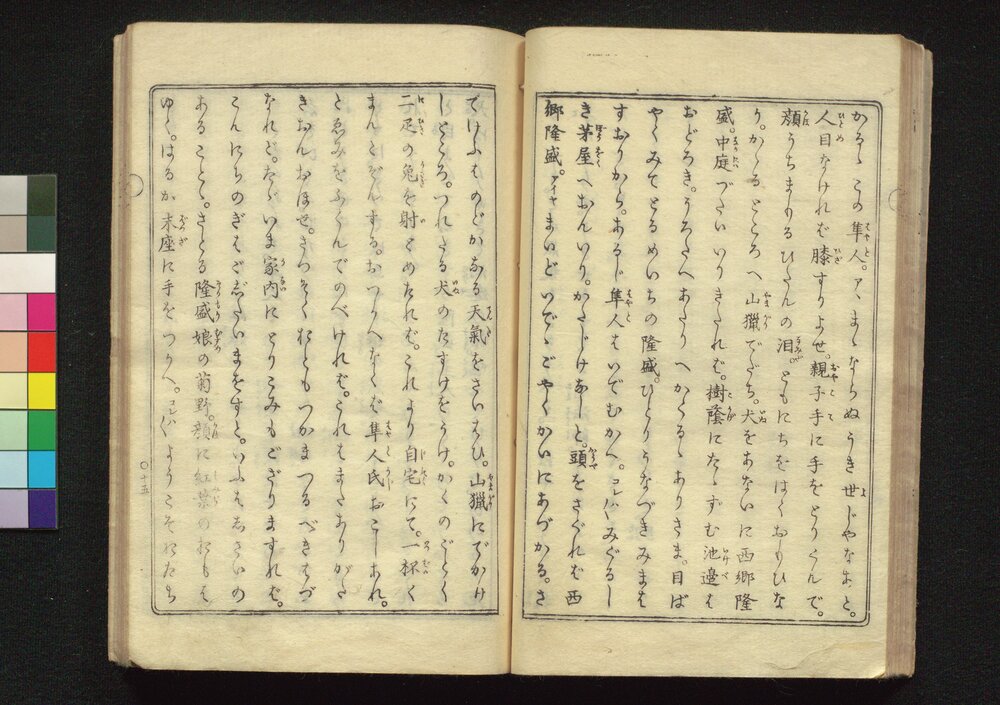 かるゝこの隼人。アヽまゝならぬうき世じやなあと。
人目なければ膝すりよせ。親子手に手をとりくんで。
顔うちまもるひたんの泪。ともにちをはくおもひな
り。かゝるところへ山獵でたち。犬をあないに西郷隆
盛。中庭づたいいりきたれば。樹蔭にたゝずむ池邉は
おどろき。うろたへあたりへかくるゝありさま。目ば
やくみてとるめいちの隆盛。ひとりうなづきみまは
すおりから。あるじ隼人もいでむかへ。コレハ〳〵みぐるし
き茅屋へおんいり。かたじけなしと。頭をさぐれば西
郷隆盛。アイヤまいどいでゝごやくかいにあづかる。さ
てけふはのどかなる天氣をさいはひ。山獵にでかけ
しところ。つれたる犬のたすけをうけ。かくのごとく
二疋の兎を射とめたれば。これより自宅にて。一杯く
まんとぞんずる。おつかへなくば隼人氏おこしあれ。
とゑみをふくんでのべければ。これはまたありがた
きおんおほせ。さつそくおともつかまつるべきはづ
なれど。たゞいま家内にとりこみもござりますれば。
こんにちのぎはごじたいまをすと。いふはしさいの
あることゝ。さとる隆盛娘の菊野。顔に紅葉のおもは
ゆく。はるか末座に手をつかへ。コレハ〳〵ようこそおたち
○十五